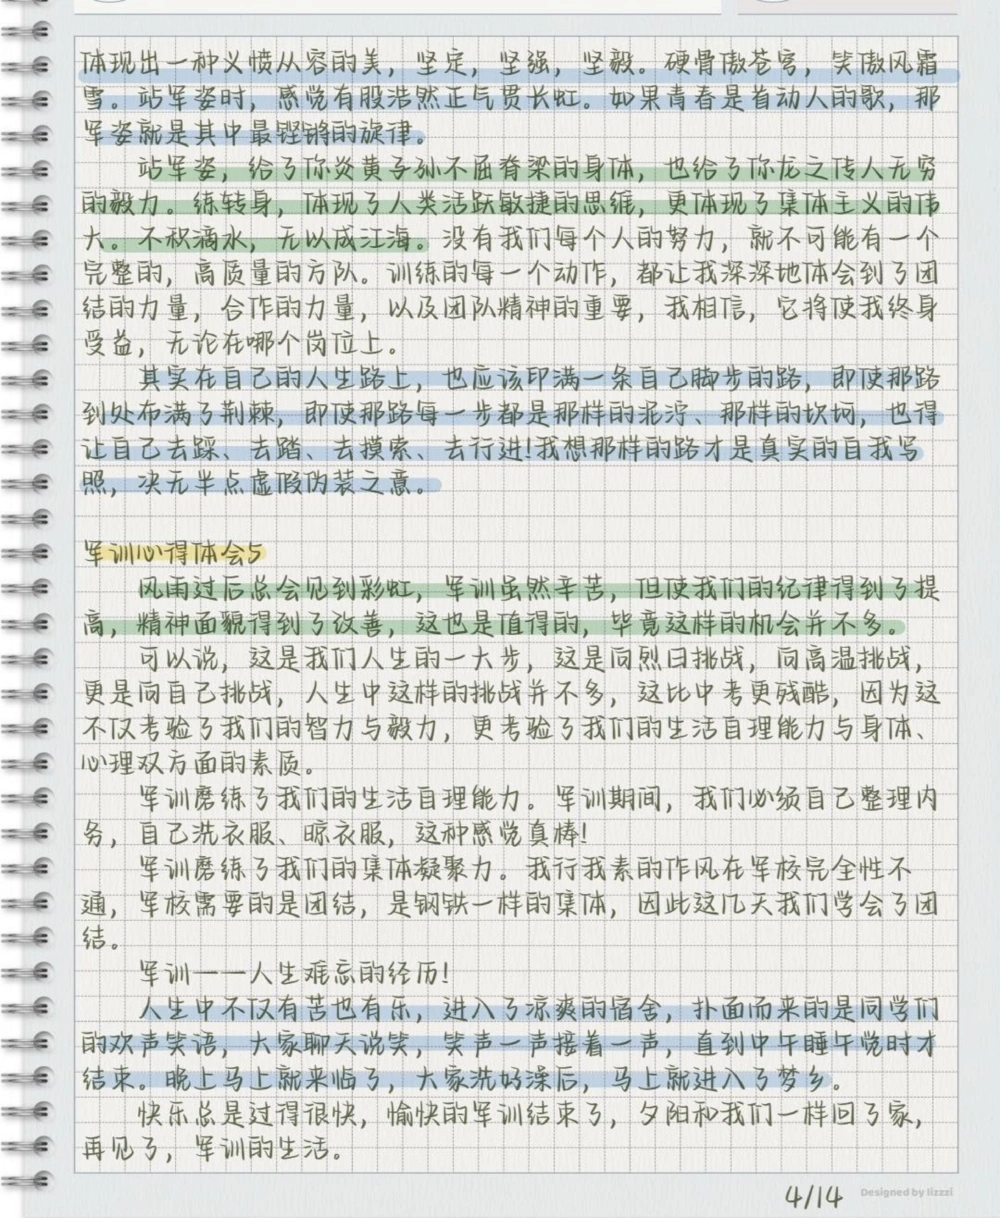 体现出一种义愤从容的美，坚定，坚强，坚毅。硬骨傲苍穹，笑傲风霜
雪。站军姿时，感觉有股浩然正气贯长虹。如果青春是首动人的歌，那
军姿就是其中最铿锵的旋律。
站军姿，给了你炎黄子孙不屈脊梁的身体，也给了你龙之传人无穷
的毅力。练转身，体现了人类活跃敏捷的思维，更体现了集体主义的伟
大。不积滴水，无以成江海。没有我们每个人的努力，就不可能有一个
完整的，高质量的方队。训练的每一个动作，都让我深深地体会到了团
结的力量，合作的力量，以及团队精神的重要，我相信，它将使我终身
受益，无论在哪个岗位上。
其实在自己的人生路上，也应该印满一条自己脚步的路，即使那路
到处布满了荆棘，即使那路每一步都是那样的泥泞、那样的坎坷，也得
让自己去踩、去踏、去摸索、去行进!我想那样的路才是真实的自我写
照，决无半点虚假伪装之意。
军训心得体会5
风雨过后总会见到彩虹，军训虽然辛苦，但使我们的纪律得到了提
高，精神面貌得到了改善，这也是值得的，毕竟这样的机会并不多。
可以说，这是我们人生的一大步，这是向烈日挑战，向高温挑战，
更是向自己挑战，人生中这样的挑战并不多，这比中考更残酷，因为这
不仅考验了我们的智力与毅力，更考验了我们的生活自理能力与身体、
心理双方面的素质。
军训磨练了我们的生活自理能力。军训期间，我们必须自己整理内
务，自己洗衣服、晾衣服，这种感觉真棒!
军训磨练了我们的集体凝聚力。我行我素的作风在军校完全性不
通，军校需要的是团结，是钢铁一样的集体，因此这几天我们学会了团
结。
军训——人生难忘的经历!
人生中不仅有苦也有乐，进入了凉爽的宿舍，扑面而来的是同学们
的欢声笑语，大家聊天说笑，笑声一声接着一声，直到中午睡午觉时才
结束。晚上马上就来临了，大家洗好澡后，马上就进入了梦乡。
快乐总是过得很快，愉快的军训结束了，夕阳和我们一样回了家，
再见了，军训的生活。
4/14
Designed by lizzzi